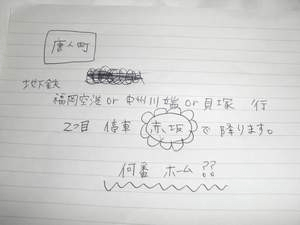 唐人町
地下鉄
福岡空港 or 中洲川端 or 貝塚 行
2つ目 停車 赤坂 で 降ります。
何番 ホーム ??